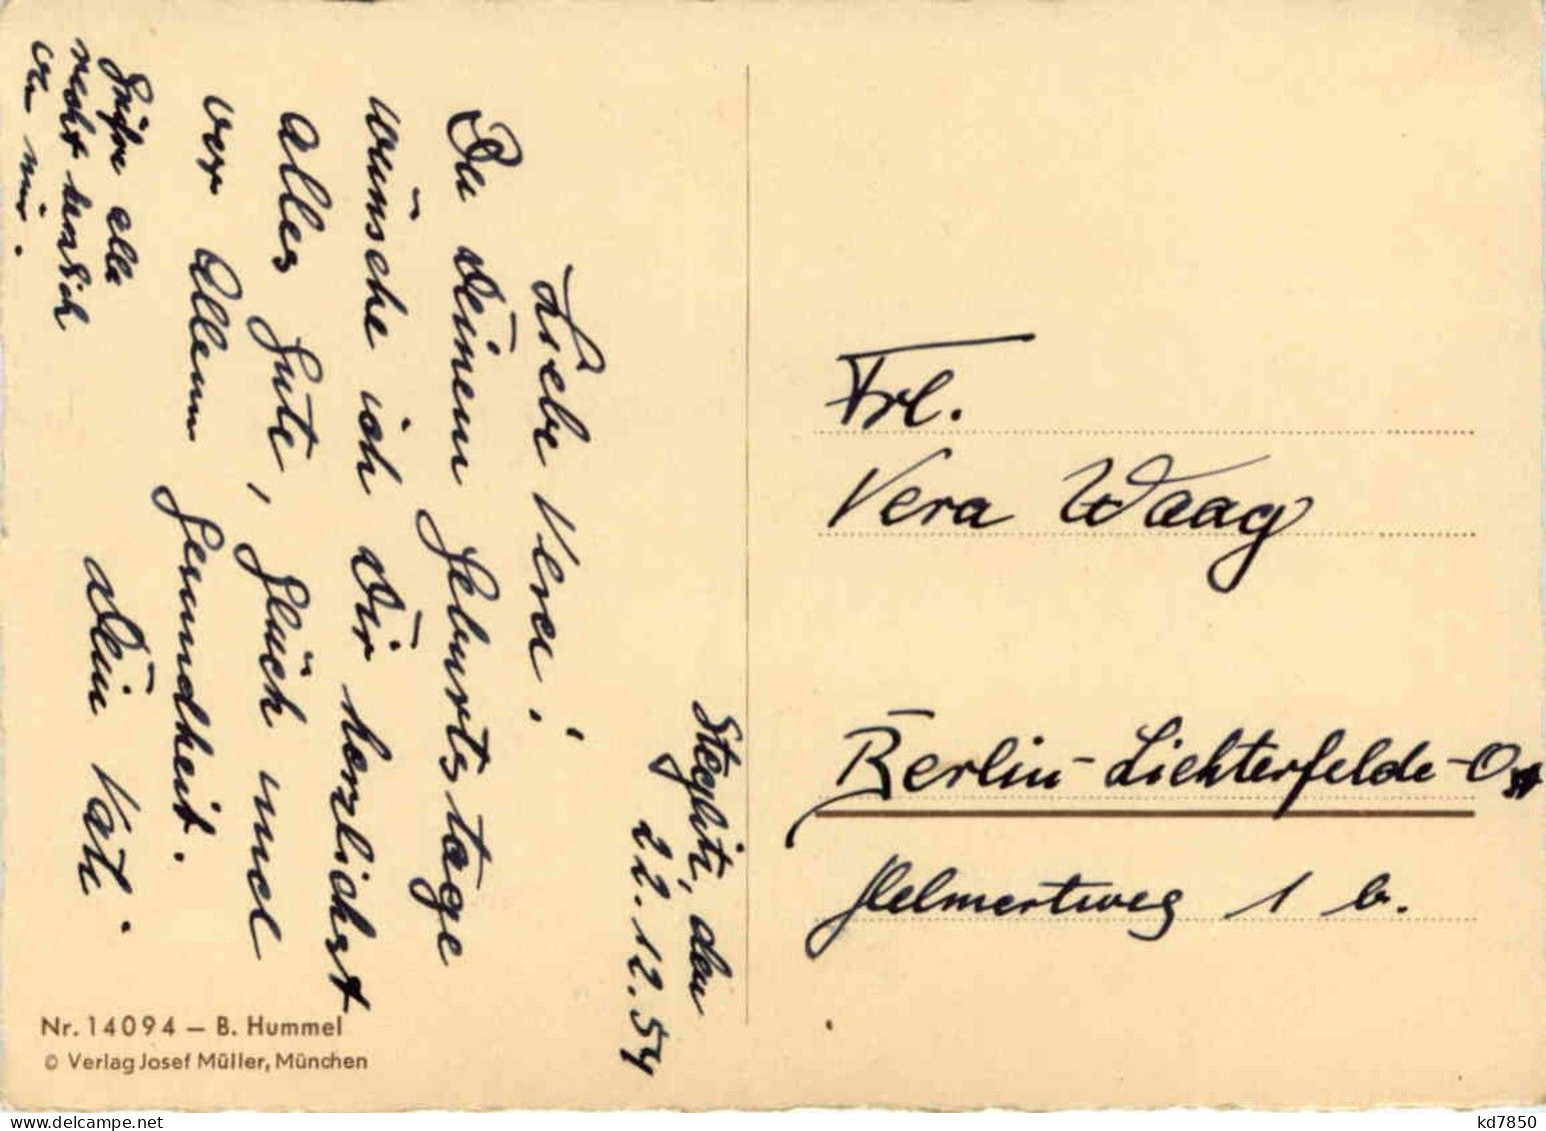 Steglitz, den
22.12.54
Liebe Vera!
Zu Deinem Geburtstage
wünsche ich Dir herzlichst
alles Gute, Glück und
vor Allem Gesundheit.
Dein Vati.
Grüße alle
recht herzlich
von mir.
Frl.
Vera Waag
Berlin-Lichterfelde-Ost
Helmertweg 1 b.
Nr. 14094 – B. Hummel
© Verlag Josef Müller, München
kd7850